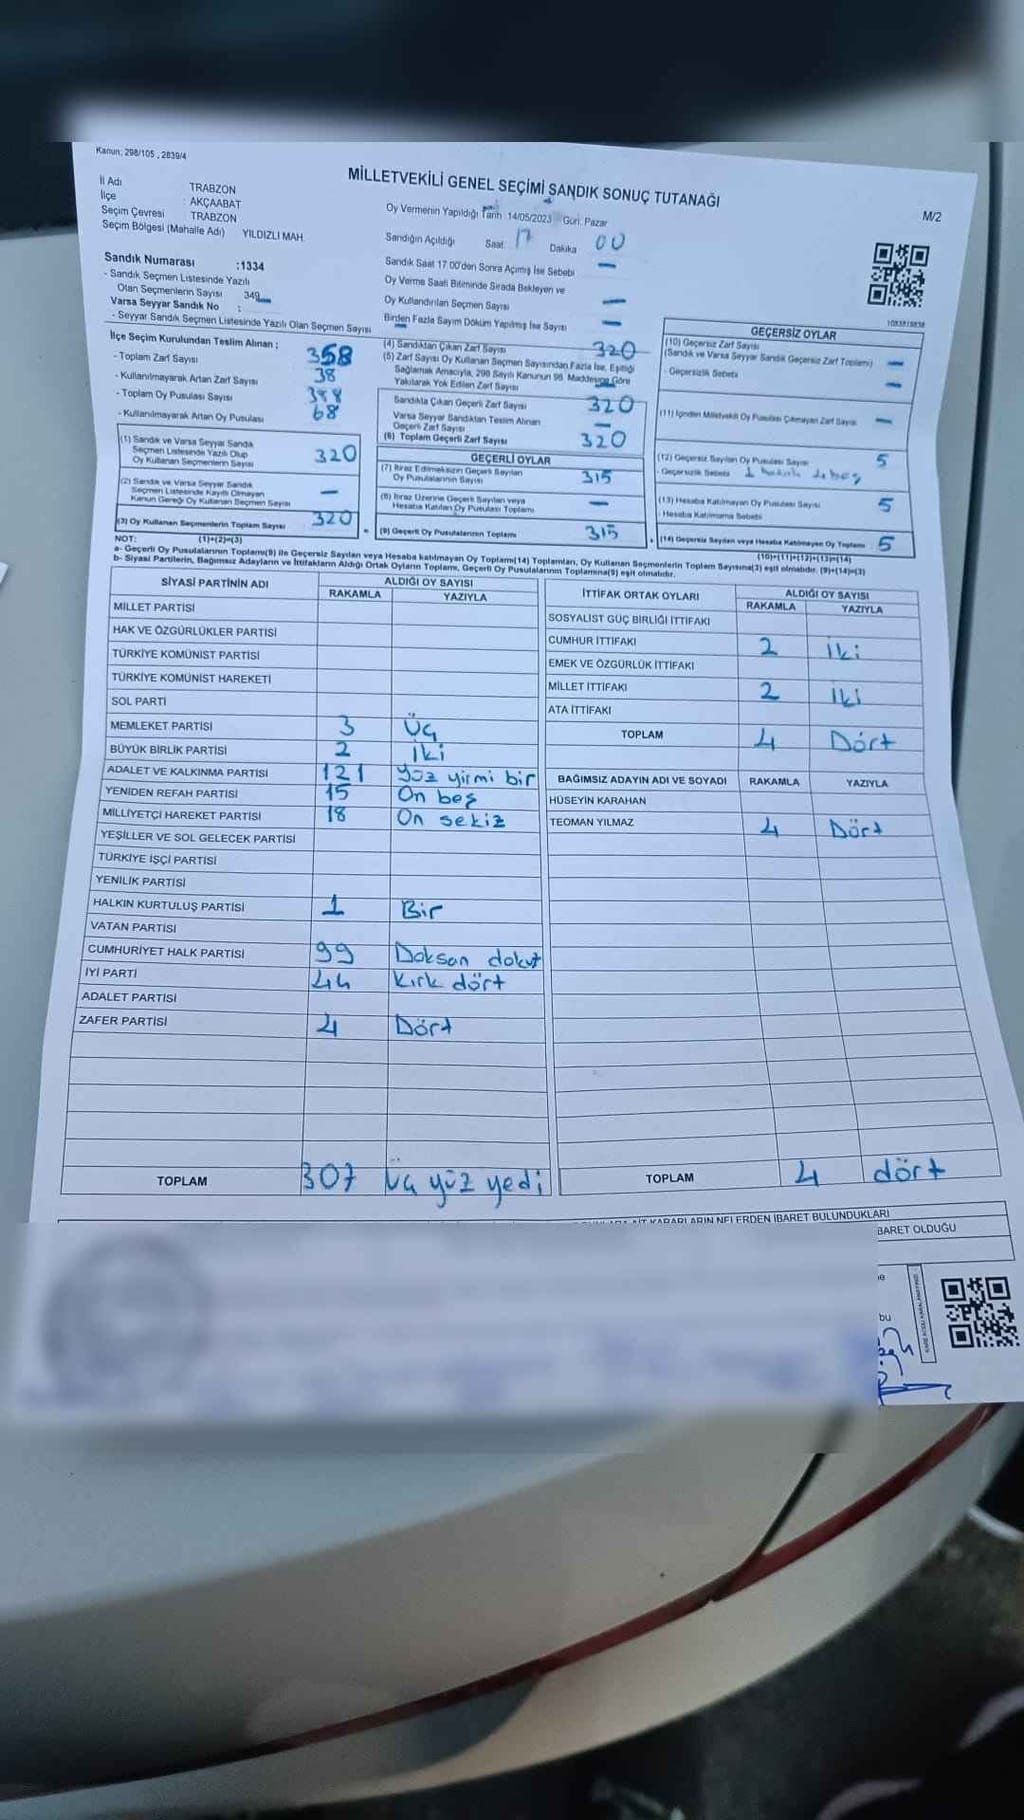 Kanun: 298/105 , 2839/4
MİLLETVEKİLİ GENEL SEÇİMİ SANDIK SONUÇ TUTANAĞI
M/2
İl Adı TRABZON
İlçe : AKÇAABAT
Seçim Çevresi TRABZON
Seçim Bölgesi (Mahalle Adı) YILDIZLI MAH.
Sandık Numarası :1334
- Sandık Seçmen Listesinde Yazılı
Olan Seçmenlerin Sayısı 349
Varsa Seyyar Sandık No :
- Seyyar Sandık Seçmen Listesinde Yazılı Olan Seçmen Sayısı
Oy Vermenin Yapıldığı Tarih 14/05/2023 Gün: Pazar
Sandığın Açıldığı Saat 17 Dakika 00
Sandık Saat 17.00'den Sonra Açımış İse Sebebi —
Oy Verme Saati Bitiminde Sırada Bekleyen ve
Oy Kullandırılan Seçmen Sayısı —
Birden Fazla Sayım Döküm Yapılmış İse Sayısı —
1083819838
İlçe Seçim Kurulundan Teslim Alınan ;
- Toplam Zarf Sayısı 358
- Kullanılmayarak Artan Zarf Sayısı 38
- Toplam Oy Pusulası Sayısı 388
- Kullanılmayarak Artan Oy Pusulası 68
(1) Sandık ve Varsa Seyyar Sandık
Seçmen Listesinde Yazılı Olup
Oy Kullanan Seçmenlerin Sayısı 320
(2) Sandık ve Varsa Seyyar Sandık
Seçmen Listesinde Kayıtlı Olmayan
Kanun Gereği Oy Kullanan Seçmen Sayısı —
(3) Oy Kullanan Seçmenlerin Toplam Sayısı 320
(1)+(2)=(3)
(4) Sandıktan Çıkan Zarf Sayısı 320
(5) Zarf Sayısı Oy Kullanan Seçmen Sayısından Fazla İse, Eşitliği
Sağlamak Amacıyla, 298 Sayılı Kanunun 98. Maddesine Göre
Yakılarak Yok Edilen Zarf Sayısı —
Sandıkta Çıkan Geçerli Zarf Sayısı 320
Varsa Seyyar Sandıktan Teslim Alınan
Geçerli Zarf Sayısı —
(6) Toplam Geçerli Zarf Sayısı 320
GEÇERLİ OYLAR
(7) İtiraz Edilmeksizin Geçerli Sayılan
Oy Pusulalarının Sayısı 315
(8) İtiraz Üzerine Geçerli Sayılan veya
Hesaba Katılan Oy Pusulası Toplamı —
= (9) Geçerli Oy Pusulalarının Toplamı 315
GEÇERSİZ OYLAR
(10) Geçersiz Zarf Sayısı
(Sandık ve Varsa Seyyar Sandık Geçersiz Zarf Toplamı) —
- Geçersizlik Sebebi —
(11) İçinden Milletvekili Oy Pusulası Çıkmayan Zarf Sayısı —
(12) Geçersiz Sayılan Oy Pusulası Sayısı 5
- Geçersizlik Sebebi
(13) Hesaba Katılmayan Oy Pusulası Sayısı 5
- Hesaba Katılmama Sebebi
+ (14) Geçersiz Sayılan veya Hesaba Katılmayan Oy Toplamı 5
(10)+(11)+(12)+(13)=(14)
NOT:
a- Geçerli Oy Pusulalarının Toplamı(9) ile Geçersiz Sayılan veya Hesaba katılmayan Oy Toplamı(14) Toplamları, Oy Kullanan Seçmenlerin Toplam Sayısına(3) eşit olmalıdır. (9)+(14)=(3)
b- Siyasi Partilerin, Bağımsız Adayların ve İttifakların Aldığı Ortak Oyların Toplamı, Geçerli Oy Pusulalarının Toplamına(9) eşit olmalıdır.
SİYASİ PARTİNİN ADI ALDIĞI OY SAYISI
RAKAMLA YAZIYLA
MİLLET PARTİSİ
HAK VE ÖZGÜRLÜKLER PARTİSİ
TÜRKİYE KOMÜNİST PARTİSİ
TÜRKİYE KOMÜNİST HAREKETİ
SOL PARTİ
MEMLEKET PARTİSİ 3 Üç
BÜYÜK BİRLİK PARTİSİ 2 İki
ADALET VE KALKINMA PARTİSİ 121 Yüz yirmi bir
YENİDEN REFAH PARTİSİ 15 On beş
MİLLİYETÇİ HAREKET PARTİSİ 18 On sekiz
YEŞİLLER VE SOL GELECEK PARTİSİ
TÜRKİYE İŞÇİ PARTİSİ
YENİLİK PARTİSİ
HALKIN KURTULUŞ PARTİSİ 1 Bir
VATAN PARTİSİ
CUMHURİYET HALK PARTİSİ 99 Doksan dokuz
İYİ PARTİ 44 Kırk dört
ADALET PARTİSİ
ZAFER PARTİSİ 4 Dört
TOPLAM 307 Üç yüz yedi
İTTİFAK ORTAK OYLARI ALDIĞI OY SAYISI
RAKAMLA YAZIYLA
SOSYALİST GÜÇ BİRLİĞİ İTTİFAKI
CUMHUR İTTİFAKI 2 İki
EMEK VE ÖZGÜRLÜK İTTİFAKI
MİLLET İTTİFAKI 2 İki
ATA İTTİFAKI
TOPLAM 4 Dört
BAĞIMSIZ ADAYIN ADI VE SOYADI RAKAMLA YAZIYLA
HÜSEYİN KARAHAN
TEOMAN YILMAZ 4 Dört
TOPLAM 4 dört
KARARLARIN NELERDEN İBARET BULUNDUKLARI
BARET OLDUĞU
bu